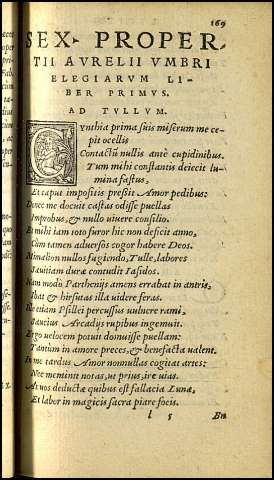 169
SEX. PROPER-
TII AVRELII VMBRI
ELEGIARVM LI-
BER PRIMVS.
AD TVLLVM.
Cynthia prima suis miserum me ce-
pit ocellis
Contactũ nullis antè cupidinibus.
Tum mihi constantis deiecit lu-
mina fastus,
Et caput impositis pressit Amor pedibus:
Donec me docuit castas odisse puellas
Improbus, & nullo uiuere consilio.
Et mihi iam toto furor hic non deficit anno,
Cùm tamen aduersos cogor habere Deos.
Nimalion nullos fugiendo, Tulle, labores
Sæuitiam duræ contudit Iasidos.
Nam modo Parthenijs amens errabat in antris,
Ibat & hirsutas illa uidere feras.
Ille etiam Psillei percussus uulnere rami,
Saucius Arcadijs rupibus ingemuit.
Ergo uelocem potuit domuisse puellam:
Tantùm in amore preces, & benefacta ualent.
In me tardus Amor nonnullas cogitat artes:
Nec meminit notas, ut prius, ire uias.
At uos deductæ quibus est fallacia Lunæ,
Et labor in magicis sacra piare focis.
l 5 En